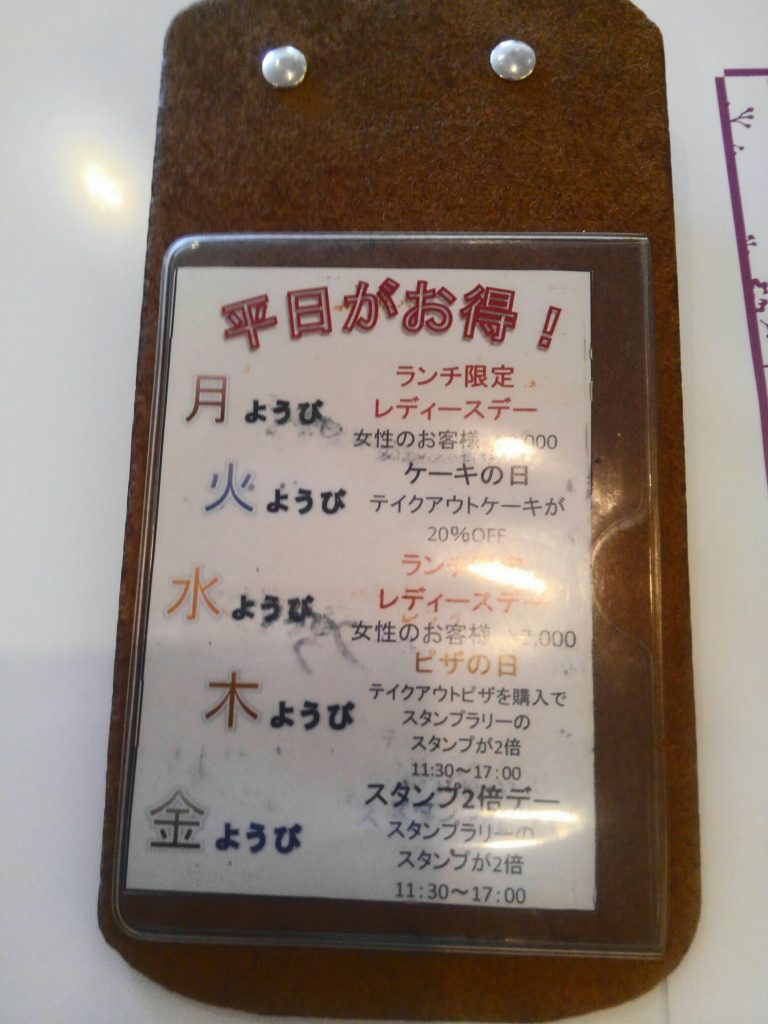 平日がお得！
月ようび
ランチ限定
レディースデー
女性のお客様
火ようび
ケーキの日
テイクアウトケーキが
20%OFF
水ようび
ランチ
レディースデー
女性のお客様 ¥2,000
木ようび
ピザの日
テイクアウトピザを購入で
スタンプラリーの
スタンプが2倍
11:30～17:00
金ようび
スタンプ2倍デー
スタンプラリーの
スタンプが2倍
11:30～17:00